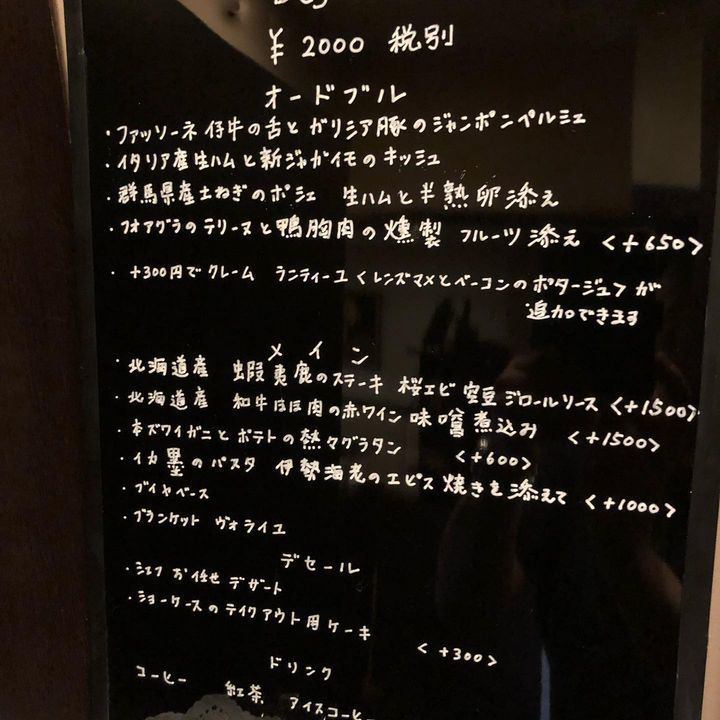 ¥2000 税別
オードブル
・ファッソーネ仔牛の舌とガリシア豚のジャンボンペルシェ
・イタリア産生ハムと新ジャガイモのキッシュ
・群馬県産土ねぎのポシェ 生ハムと半熟卵添え
・フォアグラのテリーヌと鴨胸肉の燻製 フルーツ添え <+650>
・+300円でクレーム ランティーユ<レンズマメとベーコンのポタージュ>が
追加できます
メイン
・北海道産 蝦夷鹿のステーキ 桜エビ 空豆 ジロールソース <+1500>
・北海道産 和牛ほほ肉の赤ワイン味噌煮込み <+1500>
・本ズワイガニとポテトの熱々グラタン <+600>
・イカ墨のパスタ 伊勢海老のエピス焼きを添えて <+1000>
・ブイヤベース
・ブランケット ヴォライユ
デセール
・シェフお任せデザート
・ショーケースのテイクアウト用ケーキ <+300>
ドリンク
コーヒー 紅茶 アイスコーヒー